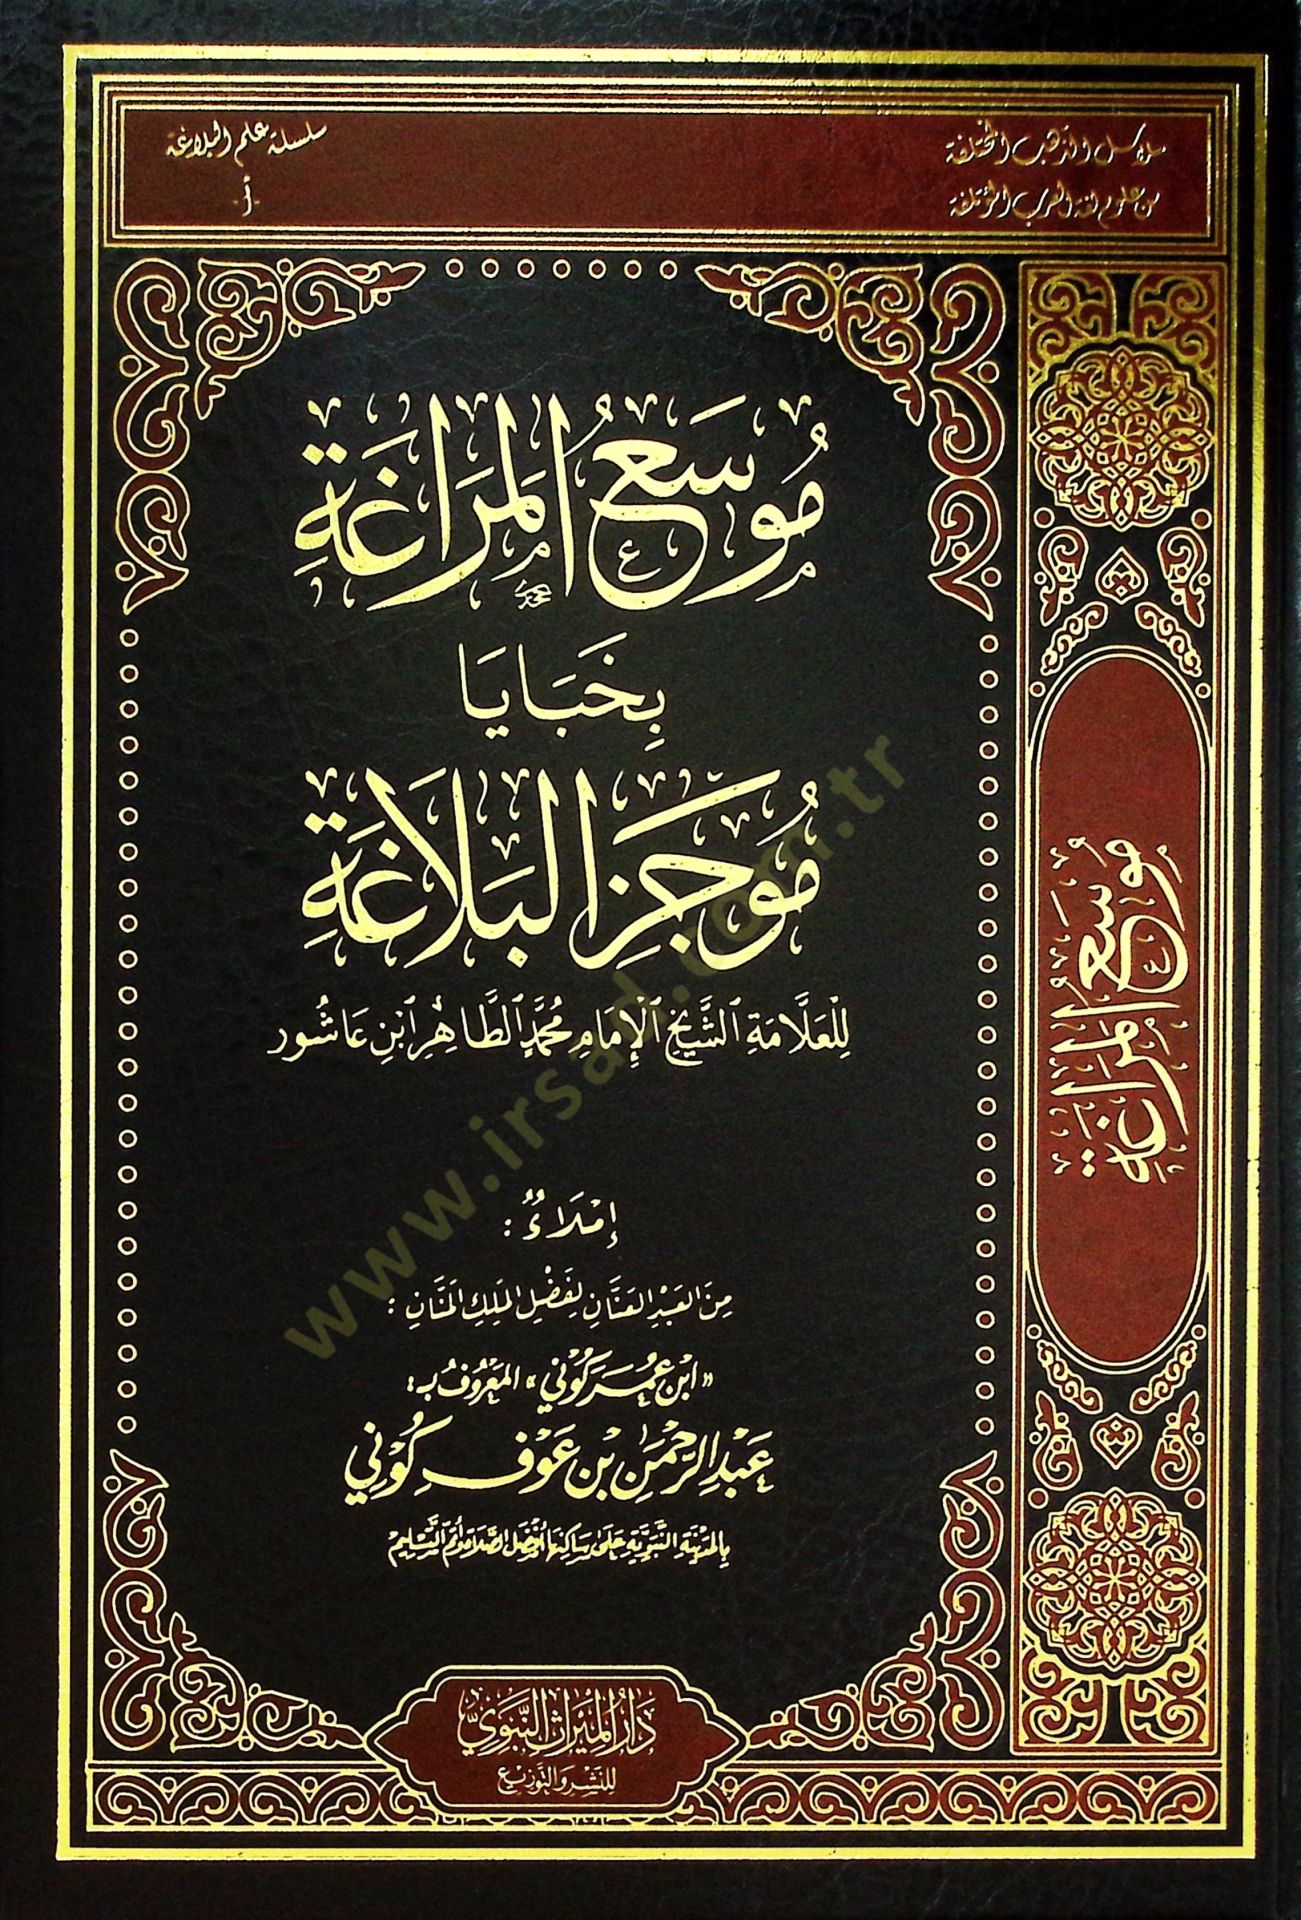 سلاسل الذهب المختلفة
من علوم لغة العرب المؤتلفة
سلسلة علم البلاغة
مُوسَعُ المَرَاغَةِ
بِخَبَايَا
مُوجَزِ البَلَاغَةِ
لِلْعَلَّامَةِ الشَّيْخِ الإِمَامِ مُحَمَّدٍ الطَّاهِرِ ابْنِ عَاشُور
إِمْلَاءُ :
مِنَ العَبْدِ العَنَّانِ لِفَضْلِ المَلِكِ المَنَّانِ :
« ابْنِ عُمَرَ كُونِي » المَعْرُوفُ بِـ :
عَبْدِ الرَّحْمَنِ بْنِ عَوْف كُونِي
بِالمَدِينَةِ النَّبَوِيَّةِ عَلَى سَاكِنِهَا أَفْضَلُ الصَّلَاةِ وَأَتَمُّ التَّسْلِيم
دَارُ المِيرَاثِ النَّبَوِيِّ
لِلنَّشْرِ وَالتَّوْزِيعِ
مُوسَعُ المَرَاغَةِ
www.irsad.com.tr